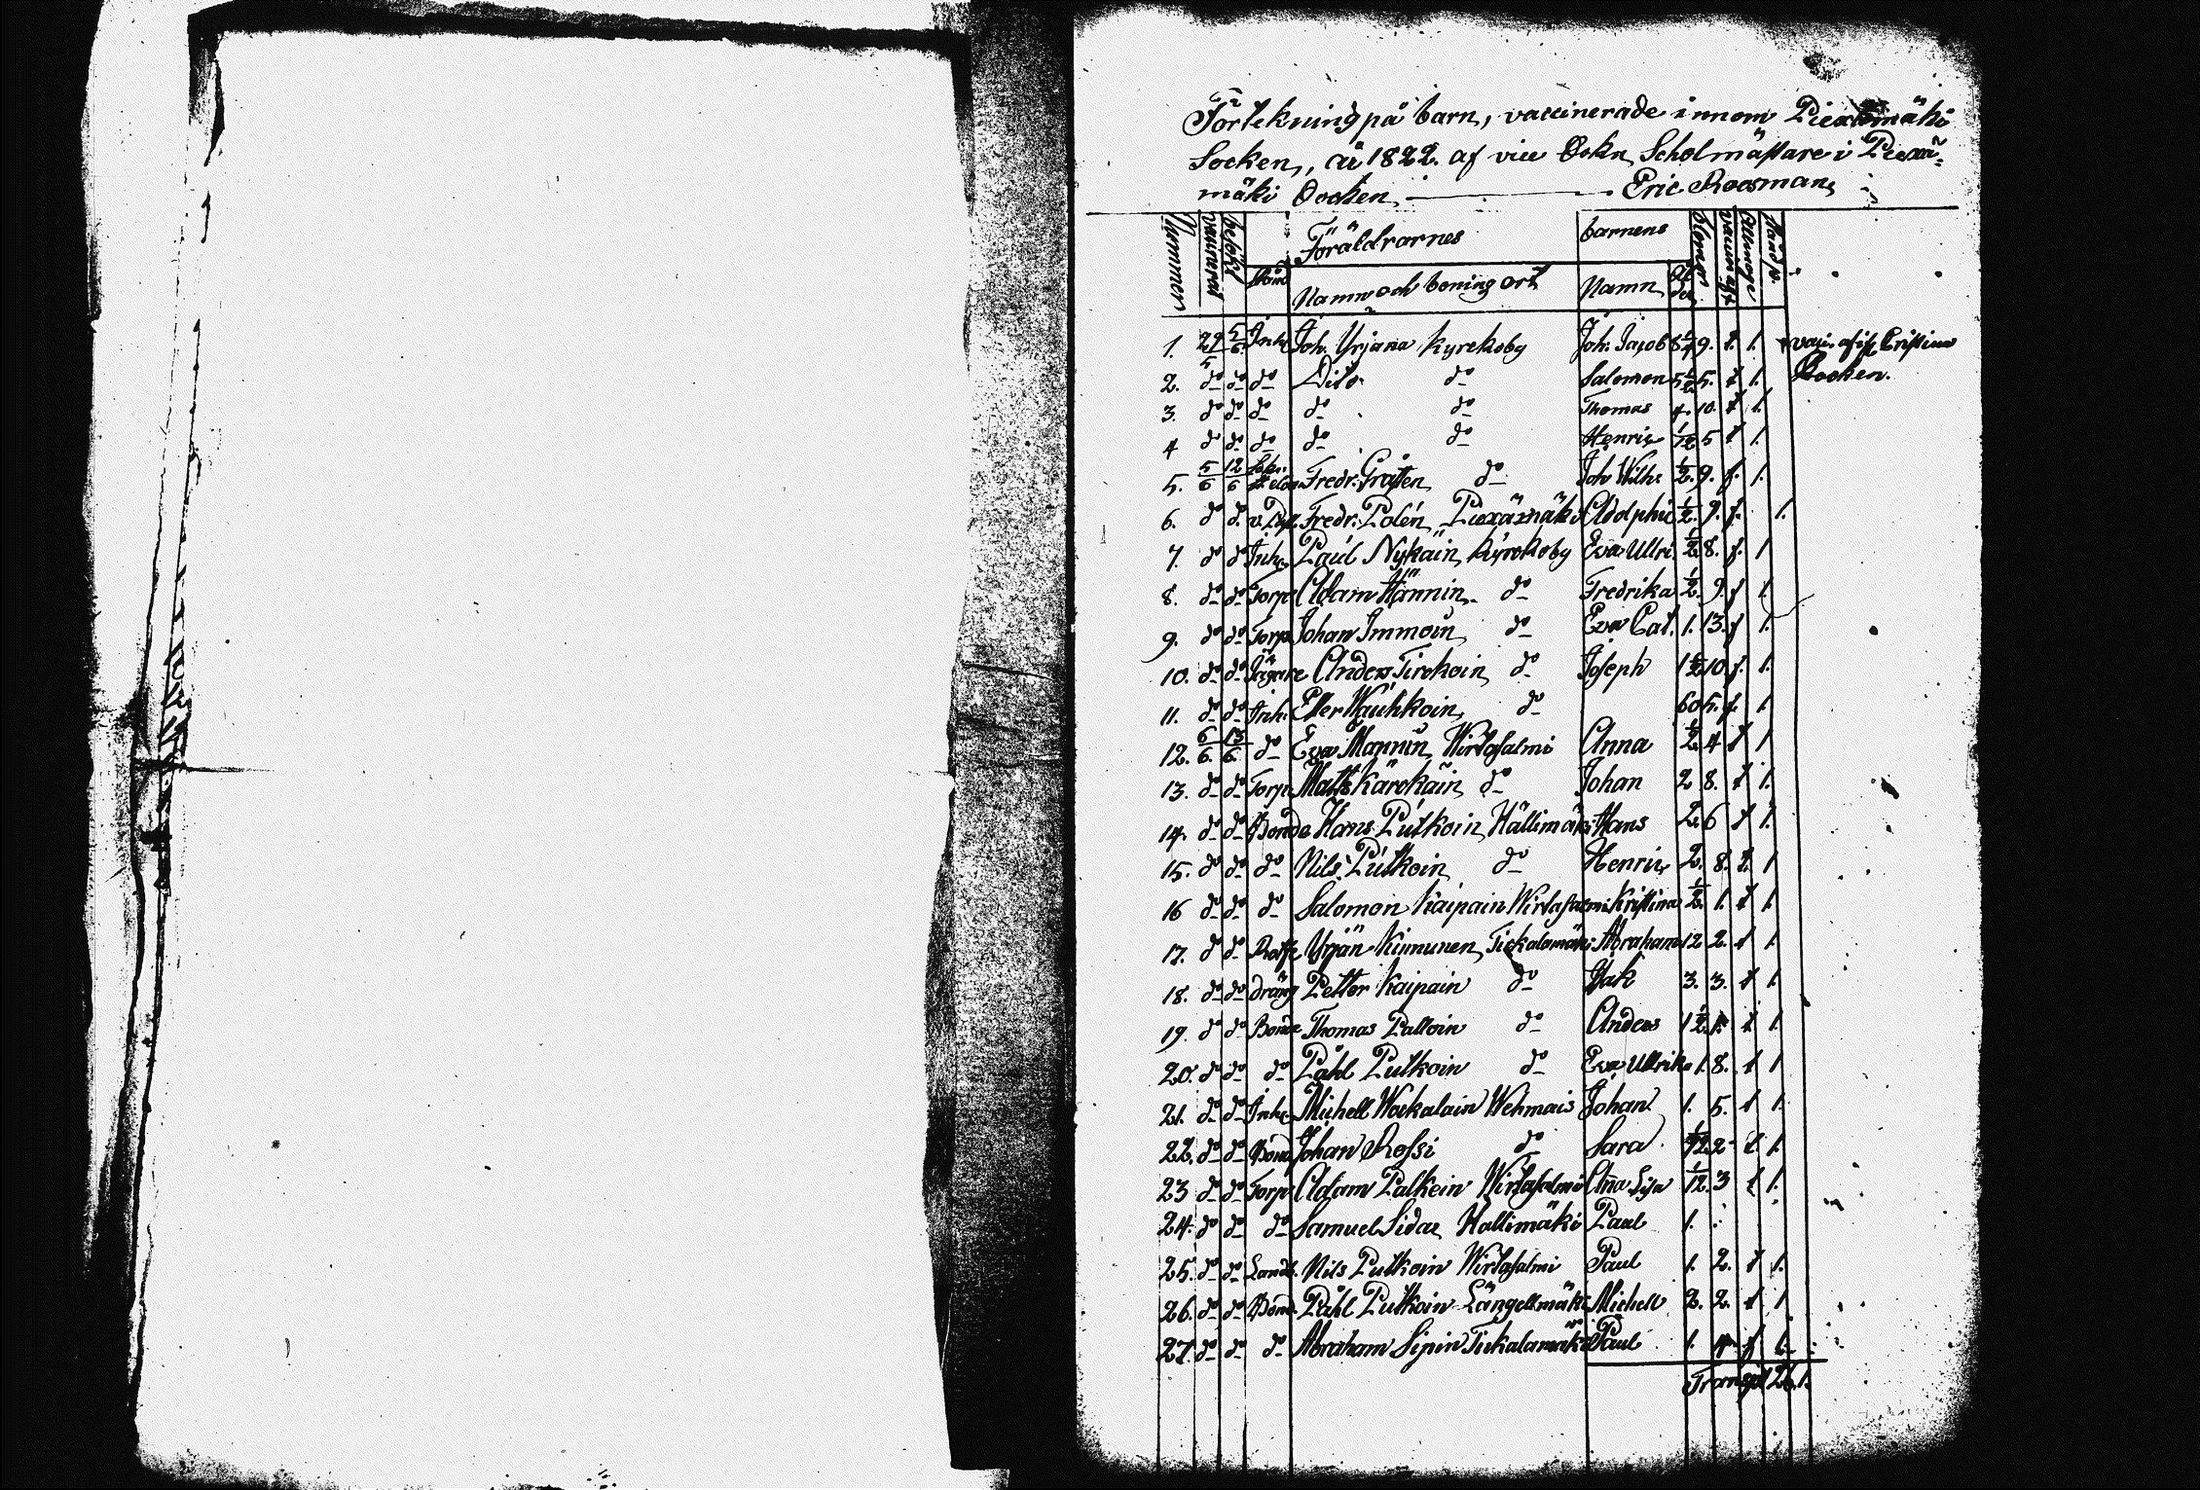 Förtekning på barn, vaccinerade innom Piexämäki
Socken, år 1822. af vice Sokn Scholmästare i Piexä-
mäki Socken, Eric Roosman,
Nummer vaccinerad besökt Stånd Föräldrarnes Namn och boning ort barnens Namn Ålder
1. 29/5 5/6 Inh. Joh. Yrjana Kyrckoby Joh. Jacob 8 1/4 9. f. 1. vaji. af if Cristina
2. do do do Dito do Salomon 5 1/2 5. f 1. Socken.
3. do do do do do Thomas 4. 10. f 1.
4 do do do do do Henric 1/12 5 f 1.
5. 5/6 12/6 Fredr. Gråsten do Joh Wilh. 1/2. 9. f. 1.
6. do do. Fredr. Polén Piexämäki Adolphic 1/2. 9. f. 1.
7. do do Inh. Paul Nykäin, Kyrckoby Eva Ullri. 1/2 8. f. 1
8. do do Torp Adam Hännin do Fredrika 1/2. 9. f 1.
9. do do Torp Johan Immoin do Eva Cat. 1. 13. f 1.
10. do do Jägare Anders Tirckoin do Joseph 1 1/2 10. f. 1.
11. do do Inh. Wauhkoin, do 60 5. f. 1.
12. 6/6. 13/6. do Eva Mannin Wirtasalmi Anna 1/2. 4 f 1
13. do do Torp Matts Kärckäin do Johan 2 8. f 1.
14. do do Bonde Hans Putkoin, Hällimäki Hans 2. 6 f 1.
15. do do do Nils Putkoin do Henric 2. 8. f. 1
16 do do do Salomon Kaipain Wirtasalmi Kristina 1/2. 1. f 1.
17. do do Yrjän Kinnunen, Tickalamäki Abraham 12 2. f 1.
18. do do dräng Petter Kaipain do Isak 3. 3. f 1.
19. do do Bonde Thomas Palloin do Anders 1 1/2 f 1.
20. do do do Påhl Putkoin do Eva Ullrika 1. 8. f 1
21. do do Inh. Michell Wackalain Wehmais Johan 1. 5. f 1.
22. do do Bond Johan Rossi do Sara 2 f. 1.
23 do do Torp Adam Palkein Wirtasalmi Ana Lisa 1/12. 3 f 1.
24. do do do Samuel Sidar Hallimäki Paul 1.
25. do do Landb. Nils Putkoin Wirtasalmi Paul 1. 2. f 1.
26. do do Bond. Påhl Putkoin Längelmäki Michell 2. 2. f 1
27. do do do Abraham Sipin Tickalamäki Paul 1. 4 f 1.
Transpt 26. 1.